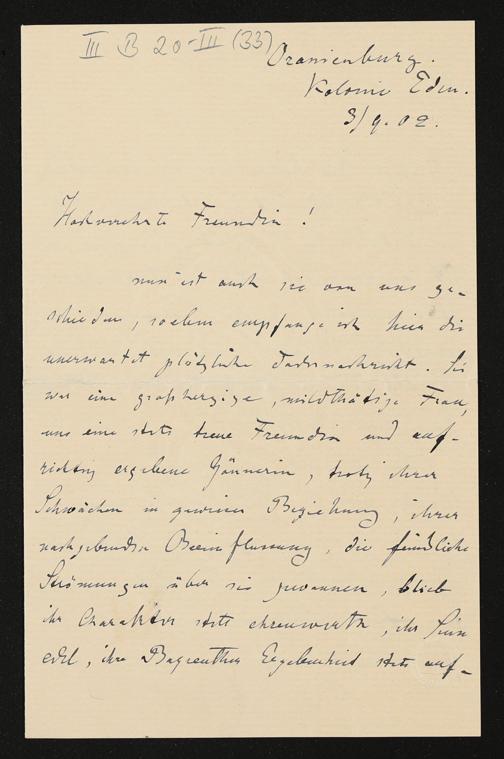 III B 20-III (33)
Oranienburg.
Kolonie Eden.
3/9.02.
Hochverehrte Freundin!
nun ist auch sie von uns ge-
schieden, soeben empfange ich hier die
unerwartet plötzliche Todesnachricht. Sie
war eine großherzige, mildthätige Frau,
uns eine stets treue Freundin und auf-
richtig ergebene Gönnerin, trotz ihrer
Schwächen in gewisser Beziehung, ihrer
nachgebenden Beeinflussung, die feindliche
Strömungen über sie gewannen, blieb
ihr Charakter stets ehrenwerth, ihr Sinn
edel, ihre Bayreuther Ergebenheit stets auf-